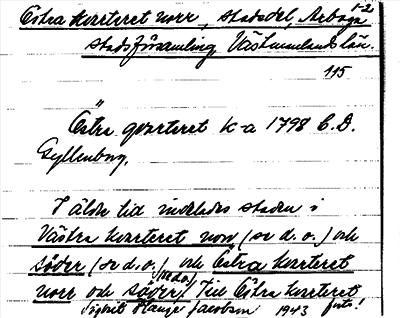 1-2
Östra kvarteret norr, stadsdel, Arboga
stadsförsamling, Västmanlands län.
115
Östra qvarteret K-a 1798 C.D.
Gyllenborg.
I äldre tid indelades staden i
Västra kvarteret norr (se d.o.) och
söder (se d.o.) och Östra kvarteret
norr och söder (se d.o.). Till Östra kvarteret
Sigrid Hange Jacobson 1943 forts!